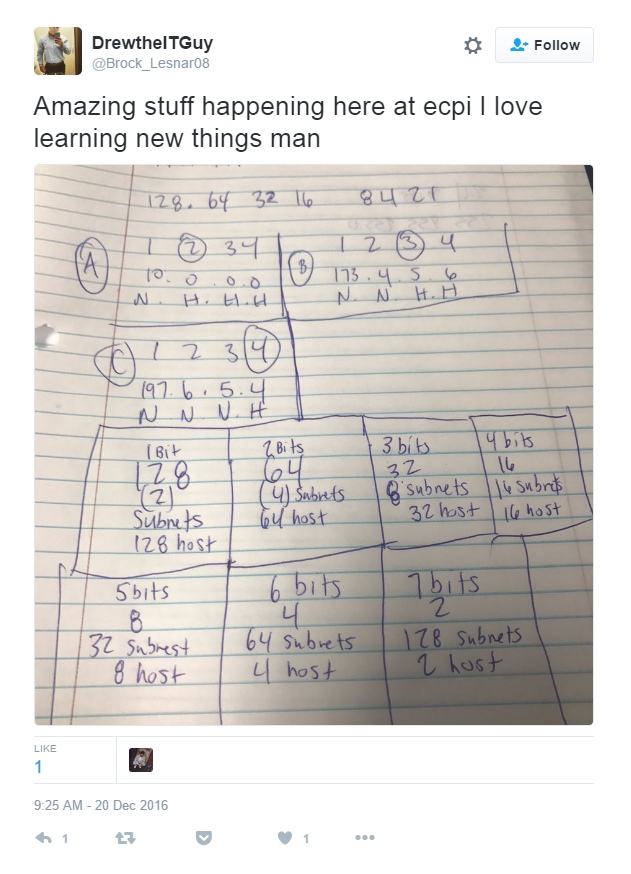 DrewtheITGuy
@Brock_Lesnar08
Follow
Amazing stuff happening here at ecpi I love
learning new things man
128. 64 32 16 8 4 2 1
A
1 2 3 4
10. 0 . 0.0
N. H. H.H
B
1 2 3 4
173.4.5.6
N. N. H.H
C
1 2 3 4
197.6.5.4
N N N. H
1 Bit
128
(2)
Subnets
128 host
2 Bits
64
(4) Subnets
64 host
3 bits
32
8 subnets
32 host
4 bits
16
16 subnets
16 host
5 bits
8
32 Subnest
8 host
6 bits
4
64 subnets
4 host
7 bits
2
128 subnets
2 host
LIKE
1
9:25 AM - 20 Dec 2016
1
1